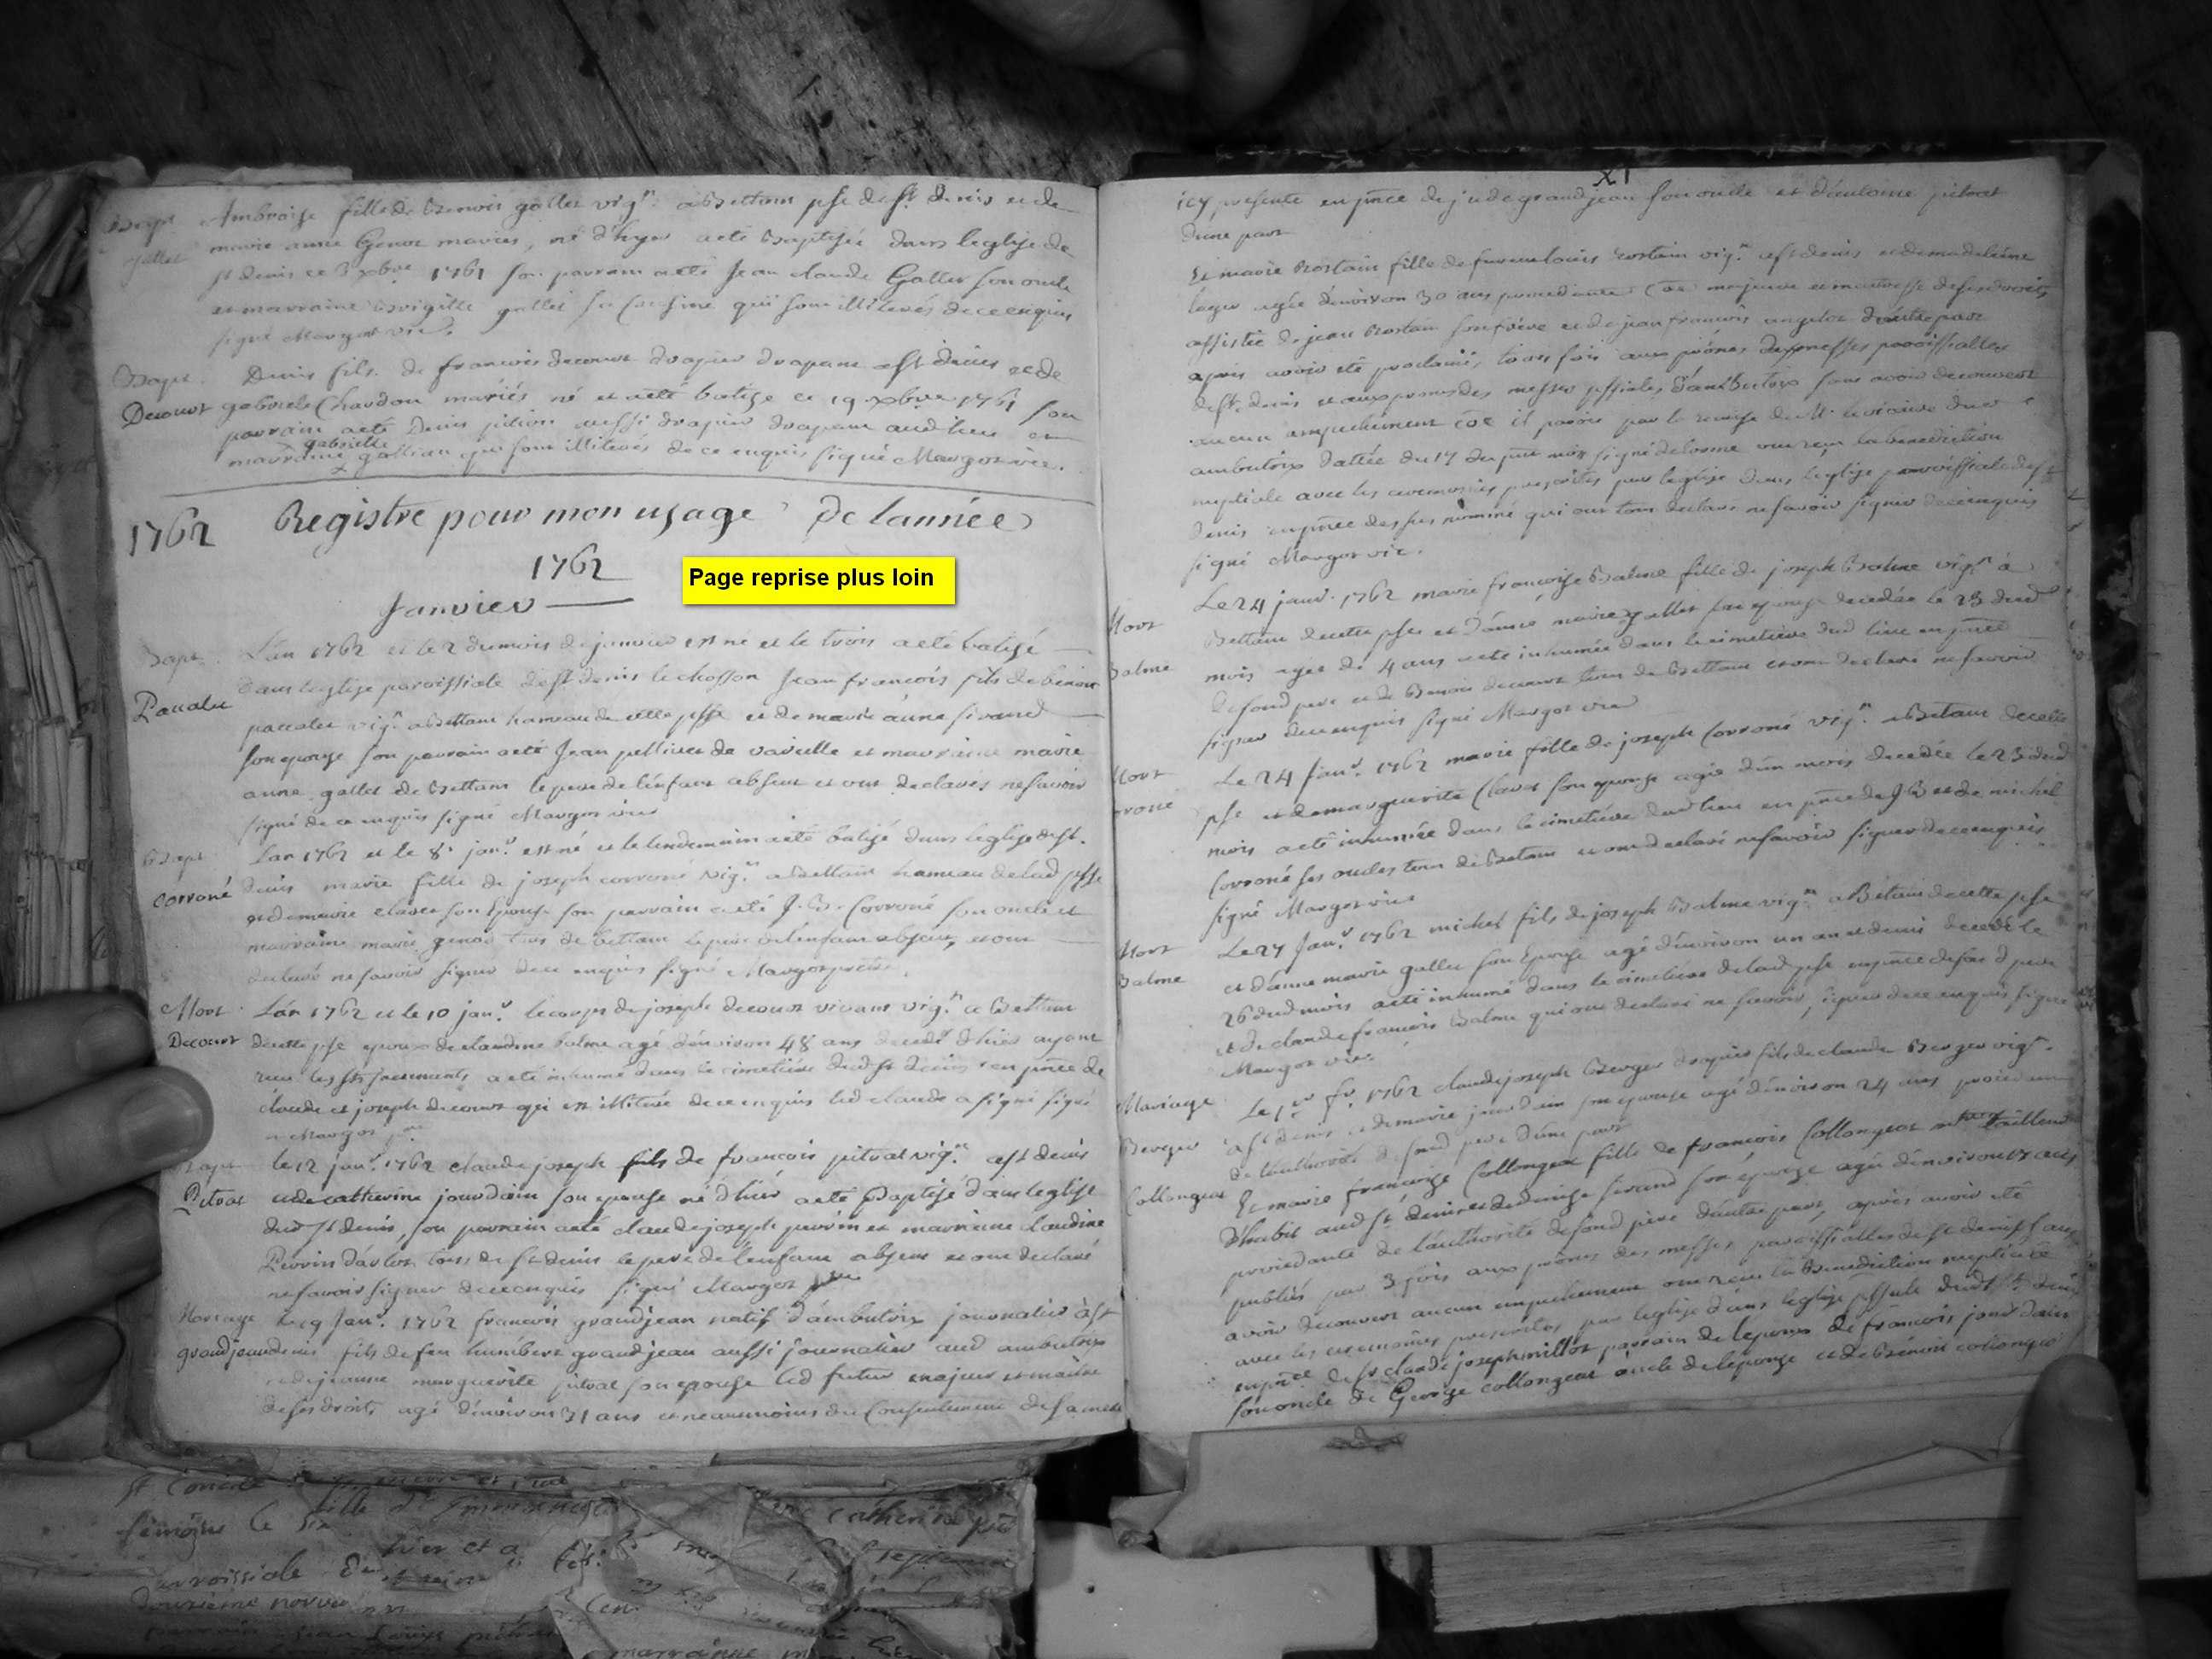 Bapt Ambroise fille de Benoit gallet vig.n a Bettant psse de st denis et de
gallet marie anne Genot mariés, né d'hyer a eté Baptisée dans leglise de
st denis ce 3 xbre 1761 son parrain a eté Jean claude Gallet son oncle
et marraine Brigitte gallet sa Cousine qui sont illiterés de ce enquis
signé Margot vic.
Bapt. Denis fils de francois decourt drapier drapant a st denis et de
Decourt gabriele Chardon mariés né et a eté batise ce 19 xbre 1761 son
parrain a eté Denis pition aussi drapier drapant aud lieu et
gabrielle
marraine gallian qui sont illiterés de ce enquis signé Margot vic.
1762 Registre pour mon usage De lannée
1762
Page reprise plus loin
Janvier
Bapt. L'an 1762 et le 2 du mois de janvier est né et le trois a eté batisé
dans leglise paroissiale de st denis le chosson Jean francois fils de benoit
Paccalet
paccalet vig.n a Bettant hameau de cette psse et de marie anne sirand
son epouse son parrain a eté Jean pellivet de vareille et marraine marie
anne gallet de Bettant le pere de lenfant absent et ont declarés ne savoir
signé de ce enquis signé Margot vic
Bapt L'an 1762 et le 8 janv. est né et le lendemain a eté batisé dans leglise de st.
corroné denis marie fille de joseph corroné vig.n a Bettant hameau de lad psse
et de marie clavet son Epouse son parrain a eté J. B. Corroné son oncle et
marraine marie genod tous de bettant le pere de lenfant absent, et ont
declaré ne savoir signer de ce enquis signé Margot
Mort L'an 1762 et le 10 janv. le corps de joseph decourt vivant vig.n a Bettant
Decourt de cette psse epoux de claudine balme agé d'environ 48 ans decedé d'hier ayant
recu les sts sacrements a eté inhumé dans le cimetière dud st denis en pnce de
claude et joseph decourt qui est illiteré de ce enquis led claude a signé signé
Margot
Bapt le 12 janv. 1762 claude joseph fils de francois pitrat vig.n a st denis
Pitrat et de catherine jourdain son epouse né d'hier a eté Baptisé dans leglise
dud st denis, son parrain a eté claude joseph perrin et marraine claudine
Perrin tous de st denis le pere de lenfant absent et ont declaré
ne savoir signer de ce enquis signé Margot
Mariage Le 19 Janv. 1762 francois grandjean natif d'ambutrix journalier à st
grandjean denis fils de feu humbert grandjean aussi journalier aud ambutrix
et de jeanne marguerite pitrat son epouse led futur majeur et maitre
de ses droits agé d'environ 31 ans et neanmoins du Consentement de sa mere
XI
icy presente en pnce de jude grandjean son oncle et d'antoine pitrat
d'une part
Et marie Rostain fille de feu louis rostain vig.n a st denis et de madeleine
leger agée d'environ 30 ans procedante come majeure et maitresse de ses droits
assistée de jean Rostain son frère et de jean francois d'autre part
après avoir été proclamés, trois fois aux prônes des messes paroissialles
de st denis et aux prones des messes pssiales d'ambutrix sans avoir decouvert
aucun empechement come il paroit par la remise de Mr le vicaire dud
ambutrix dattée du 17 du pnt mois signé delorme ont recu la benediction
nuptiale avec les ceremonies prescrites par leglise dans leglise paroissiale de st
denis en pnce des sus nommé qui ont tous declaré ne savoir signer de ce enquis
signé Margot vic.
Mort Le 24 janv. 1762 marie francoise Balme fille de joseph Balme vig.n à
Bettant de cette psse et d'anne marie gallet son epouse decedée le 23 dud
Balme mois agée de 4 ans a eté inhumée dans le cimetière dud lieu en pnce
de sond pere et de Benoit decourt tous de Bettant et ont declaré ne savoir
signer de ce enquis signé Margot vic
Mort Le 24 Janv. 1762 marie fille de joseph Corroné vig.n a Betant de cette
rroné psse et de marguerite Clavet son epouse agée d'un mois decedée le 23 dud
mois a eté inhumée dans le cimetière dud lieu en pnce de J B et de michel
Corroné ses oncles tous de Betant et ont declaré ne savoir signer de ce enquis
signé Margot vic
Mort Le 27 Janv. 1762 michel fils de joseph Balme vig.n a Bétant de cette psse
Balme et d'anne marie gallet son Epouse agé d'environ un an et demi decedé le
26 dud mois a eté inhumé dans le cimetière de lad psse en pnce de sond pere
et de claude francois Balme qui ont declaré ne savoir signer de ce enquis signé
Margot vic
Mariage Le 1er fv. 1762 claude joseph Berger drapier fils de claude Berger vig.n
Berger a st denis et de marie jourdain son epouse agé d'environ 24 ans procedant
de l'authorité de sond pere d'une part
Collongeat Et marie francoise Collongeat fille de francois Collongeat tailleur
d'habit aud st denis et de denise sirand son épouse agée d'environ ans
procedante de l'authorité de sond père d'autre part, après avoir été
publiés par 3 fois aux prones des messes paroissialles de st denis sans
avoir decouvert aucun empechement ont recu la Benediction nuptiale
avec les ceremonies prescrites par leglise dans leglise pssiale dud st denis
en pnce de sr claude joseph millot parrain de lepoux de francois jourdain
son oncle de George collongeat oncle de lepouse et de Benoit collongeat
st
témoins le six fille d
hier et a
parroissiale
douzième
catherine
septieme
marraine